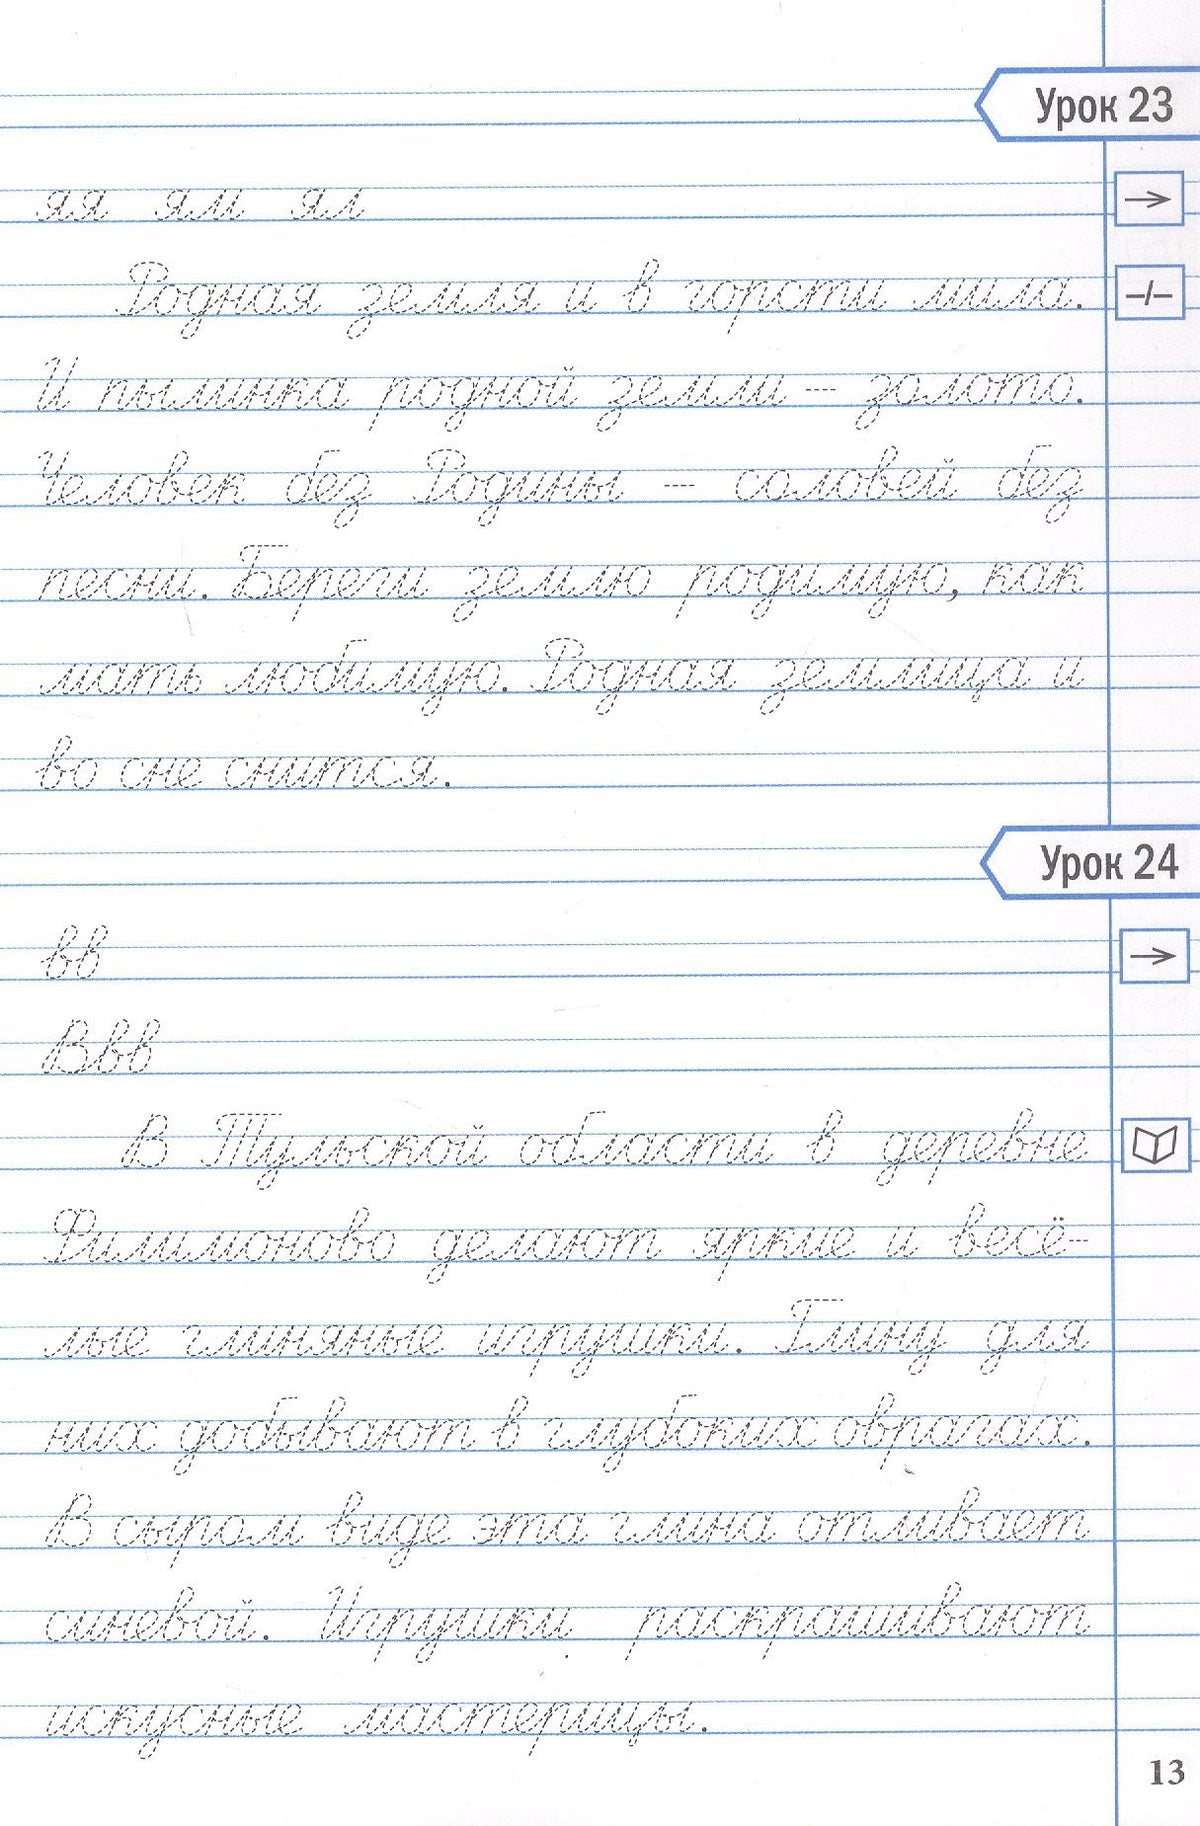 Урок 23
яя ям ял
Родная земля и в горсти мила.
И пылинка родной земли — золото.
Человек без Родины — соловей без
песни. Береги землю родимую, как
мать любимую. Родная землица и
во сне снится.
Урок 24
вв
Ввв
В Тульской области в деревне
Филимоново делают яркие и весё-
лые глиняные игрушки. Глину для
них добывают в глубоких оврагах.
В сыром виде эта глина отливает
синевой. Игрушки раскрашивают
искусные мастерицы.
13